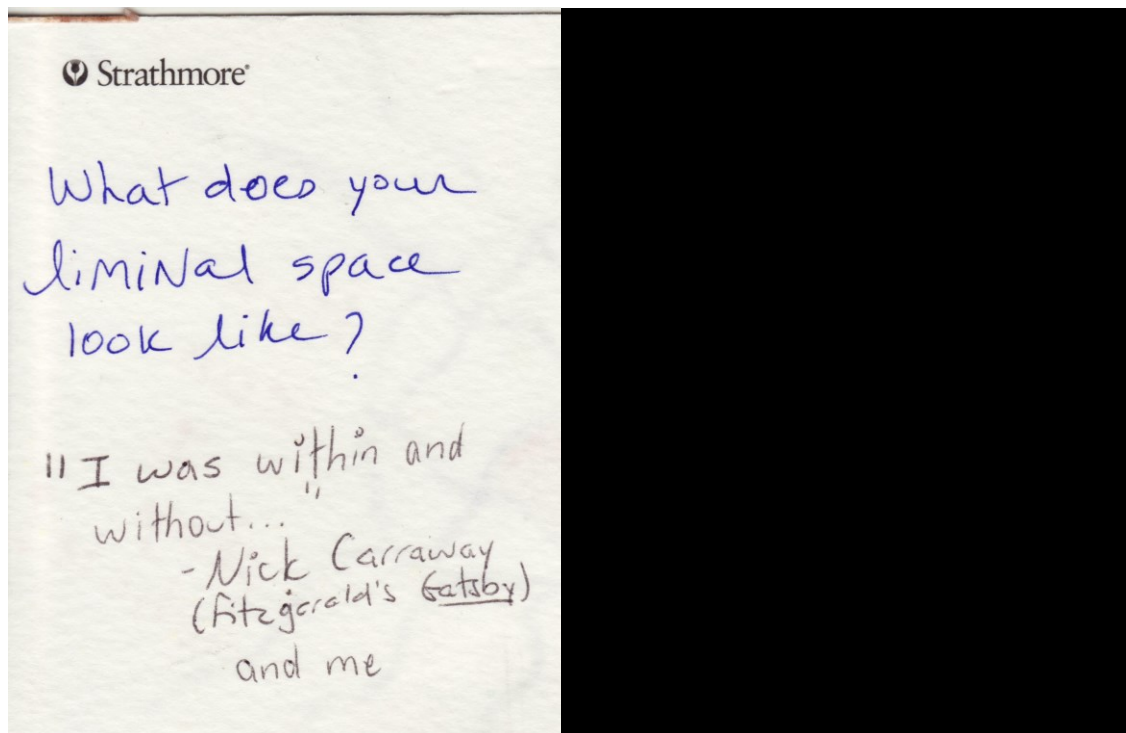 Strathmore®
What does your
liminal space
look like?
"I was within and
without..."
- Nick Carraway
(Fitzgerald's Gatsby)
and me